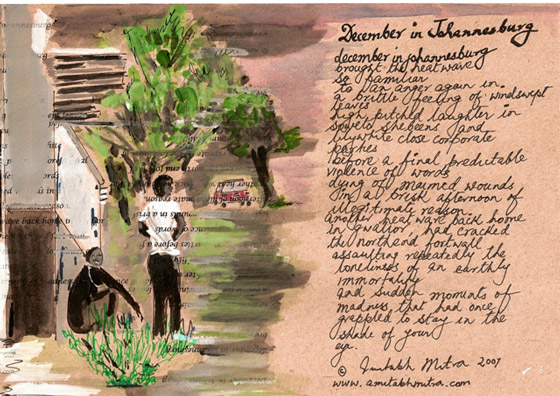 December in Johannesburg
december in johannesburg
brought the heatwave
so familiar
to van anger again in
a brittle feeling of windswept
leaves
high pitched laughter in
soweto shebeens and
lilywhite close corporate
parties
before a final predictable
violence of words
dying of maimed wounds
in a brisk afternoon of
illegitimate reason
another heat wave back home
in gwalior, had cracked
the northend fortwall
assaulting repeatedly the
loneliness of an earthly
immortality
and sudden moments of
madness that had once
grappled to stay in the
shade of your
eye.
© Amitabh Mitra 2007
www.amitabhmitra.com